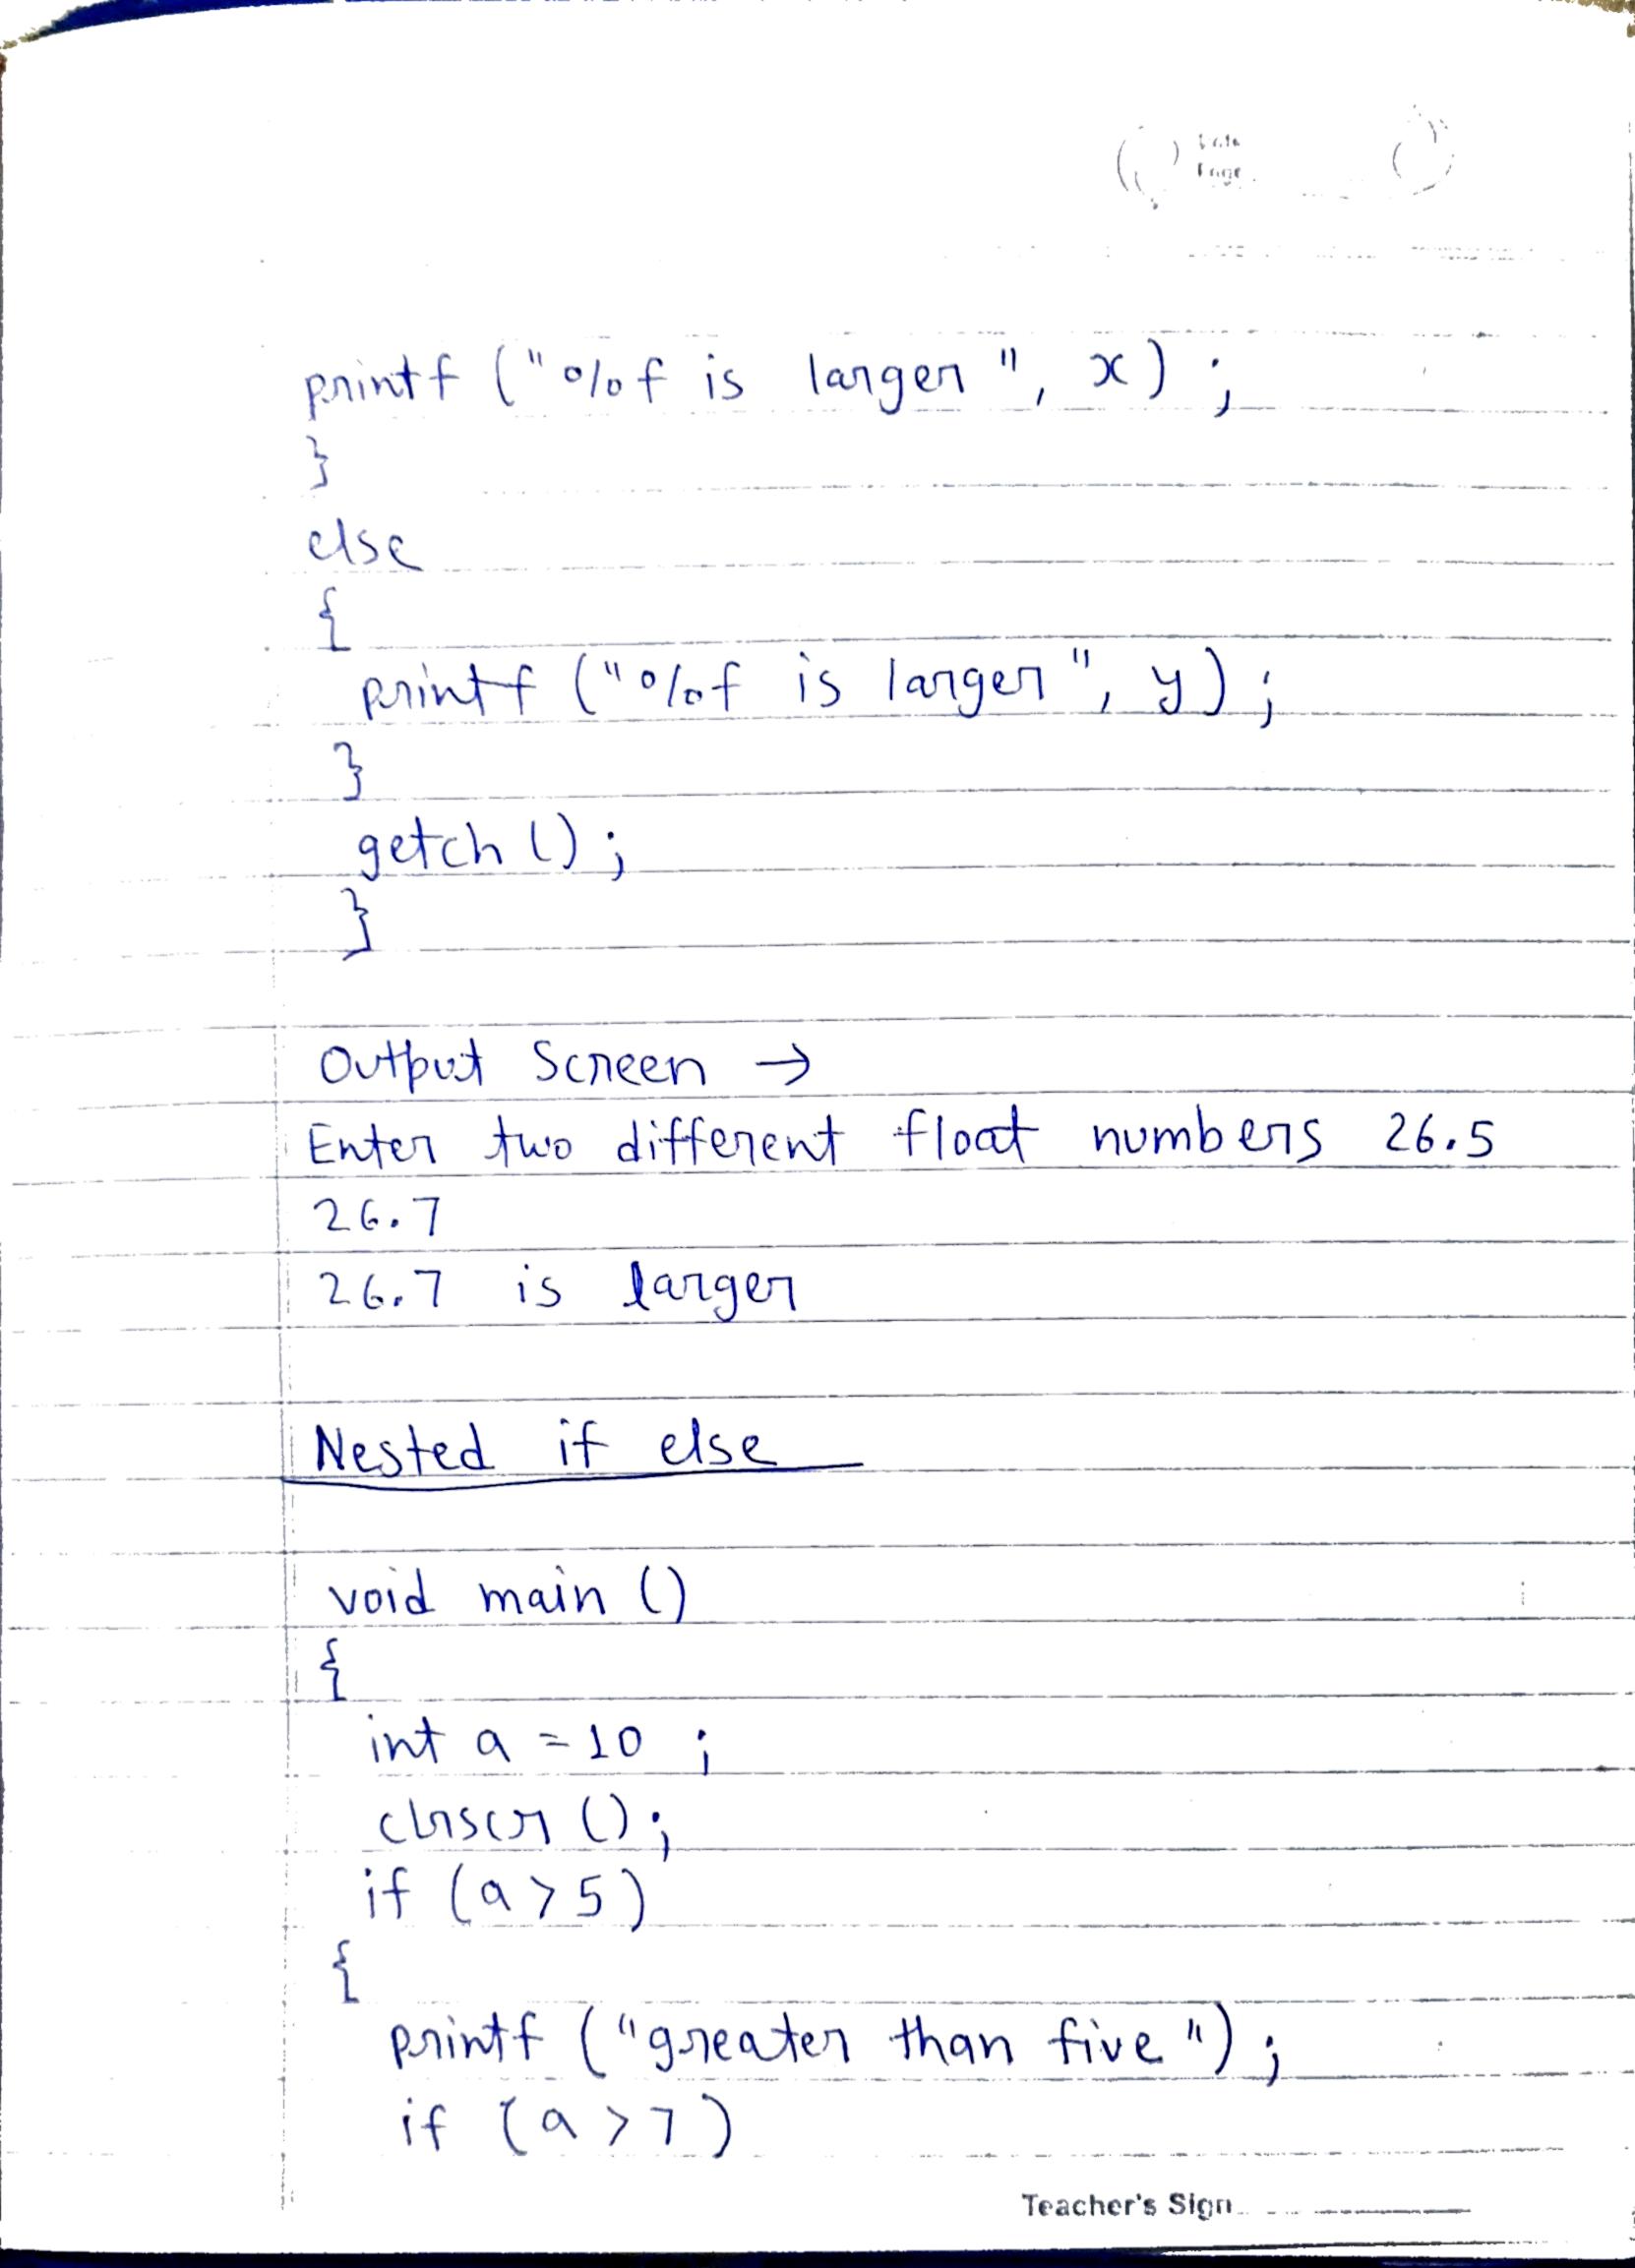 Date
Page
printf ("%f is larger", x) ;
}
else
{
printf ("%f is larger", y) ;
}
getch () ;
}
Output Screen →
Enter two different float numbers 26.5
26.7
26.7 is larger
Nested if else
void main ()
{
int a = 10 ;
clrscr () ;
if (a > 5)
{
printf ("greater than five") ;
if (a > 7)
Teacher's Sign